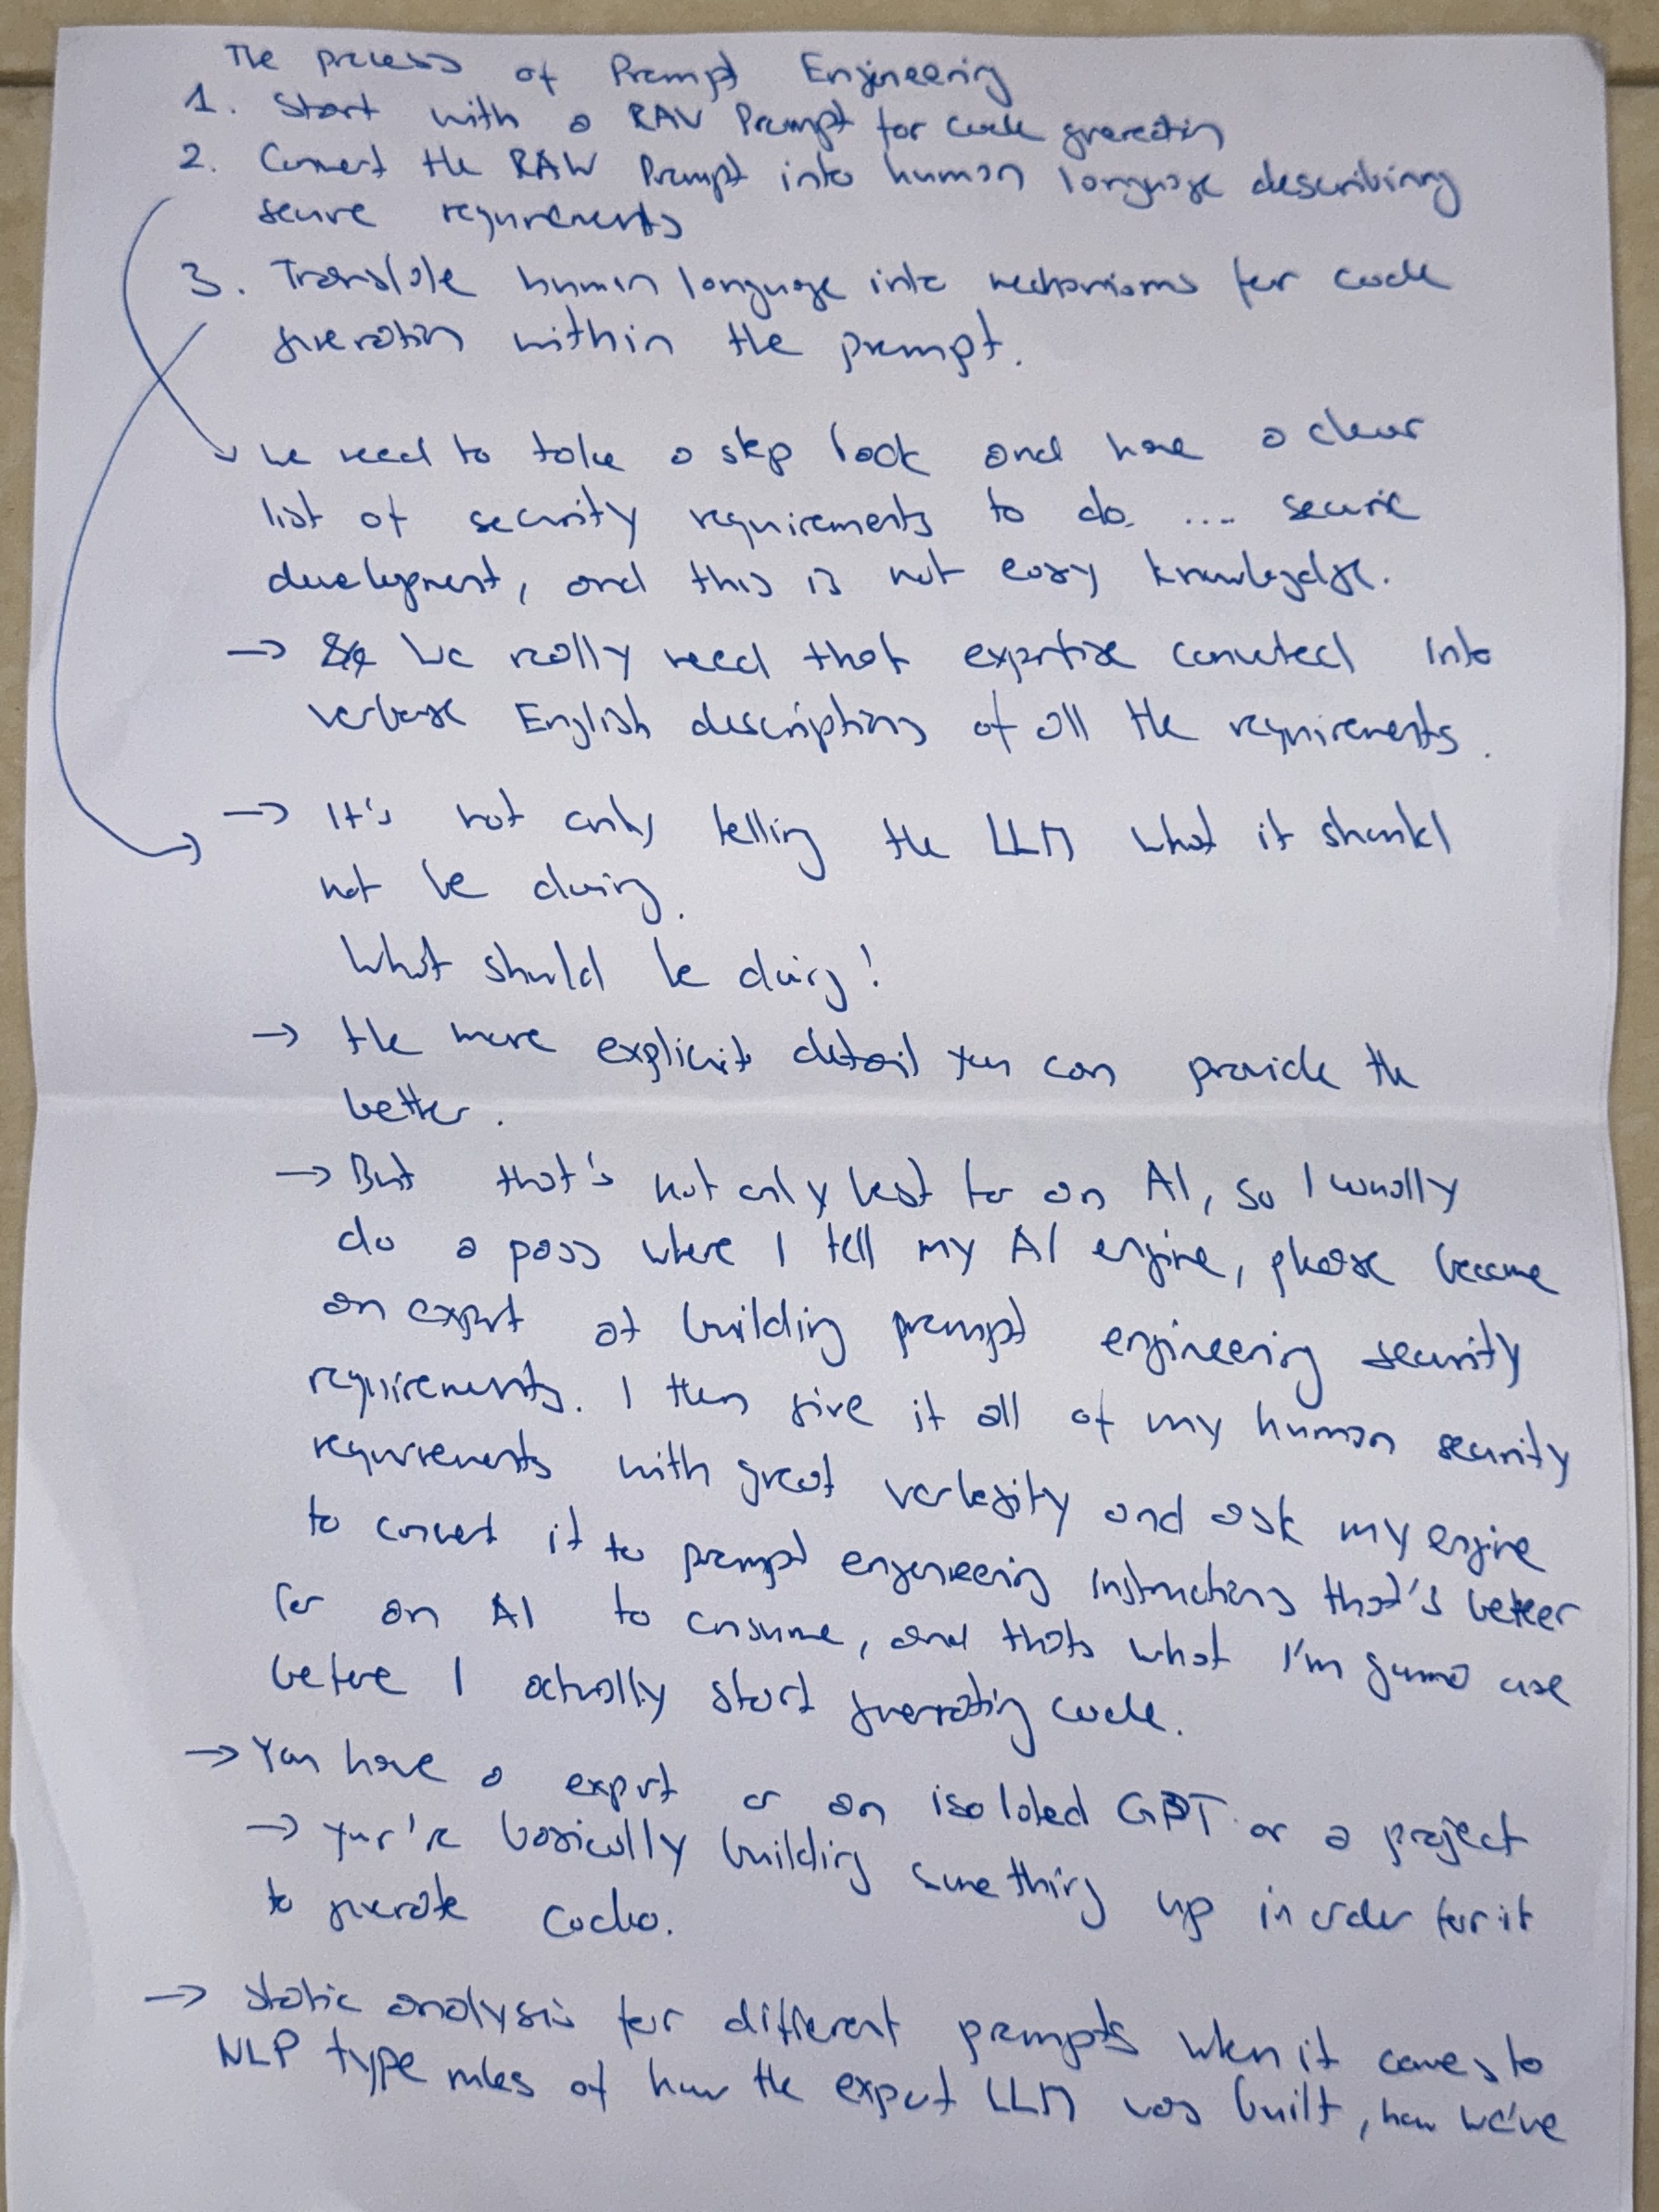 The process of Prompt Engineering
1. Start with a RAW Prompt for code generation
2. Convert the RAW Prompt into human language describing
secure requirements
3. Translate human language into mechanisms for code
generation within the prompt.
→ We need to take a step back and have a clear
list of security requirements to do .... secure
development, and this is not easy knowlegdge.
→ We really need that expertise converted into
verbose English descriptions of all the requirements.
→ It's not only telling the LLM what it should
not be doing.
What should be doing!
→ the more explicit detail you can provide the
better.
→ But that's not only best for an AI, so I usually
do a pass where I tell my AI engine, please become
an expert at building prompt engineering security
requirements. I then give it all of my human security
requirements with great verbosity and ask my engine
to convert it to prompt engineering instructions that's better
for an AI to consume, and thats what I'm gunna use
before I actually start generating code.
→ You have a expert or an isolated GPT or a project
→ your're basically building something up in order for it
to generate code.
→ static analysis for different prompts when it comes to
NLP type rules of how the expert LLM was built, how we've